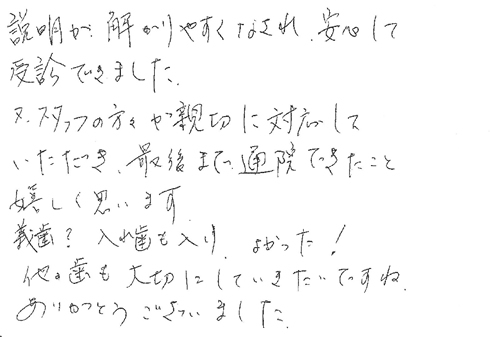 説明が解かりやすくなされ、安心して
受診できました。
又、スタッフの方々が親切に対応して
いただき、最後まで通院できたこと
嬉しく思います。
義歯？入れ歯も入り、よかった！
他の歯も大切にしていきたいですね。
ありがとうございました。